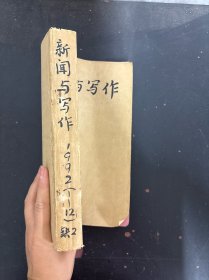 新闻与写作
1992(1-12)
缺2
与写作